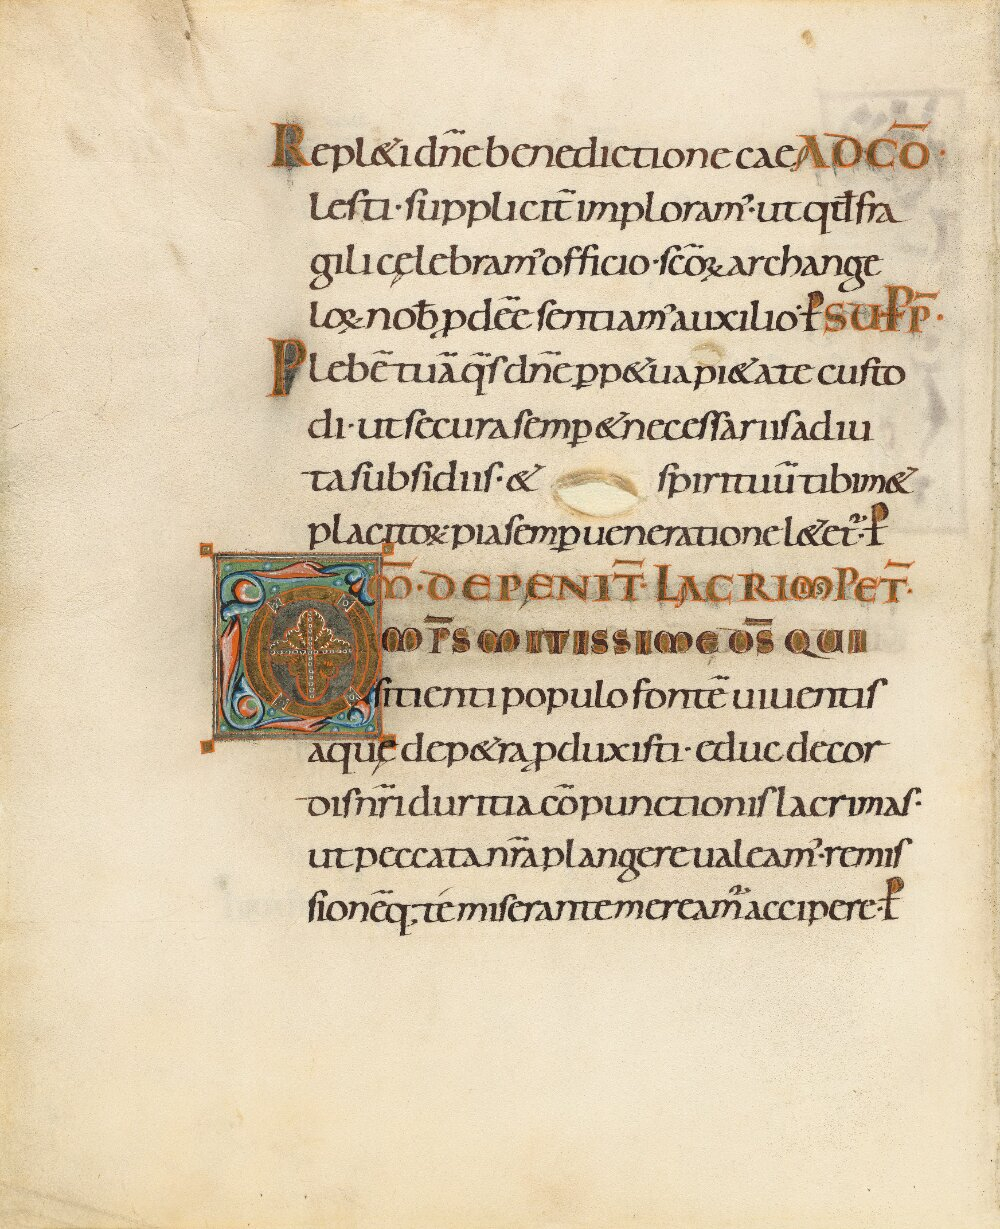 Repl&i dn̄e benedictione cae AD CŌ·
lesti· supplicit̄ imploram᾿· ut qđ fra
gili cęlebram᾿ officio· sc̄oꝝ archange
loꝝ nob̄ ꝓdeē sentiam᾿ auxilio· ꝑ SUPP̄·
Plebē tuā q̄s dn̄e ꝑp&ua pi&ate custo
di· ut secura semꝑ & necessariis adiu
ta subsidiis· & spirituū tibim&
placitoꝝ pia semꝑ ueneratione l&et᾿· ꝑ
M̄· DE PENIT̄· LACRIMIS PET̄·
OMP̄S MITISSIME DS̄ QUI
sitienti populo fontē uiuentis
aquę de p&ra ꝓduxisti· educ de cor
dis nr̄i duritia cōpunctionis lacrimas·
ut peccata nr̄a plangere ualeam᾿· remis
sionēq; te miserante meream᾿ accipere· ꝑ